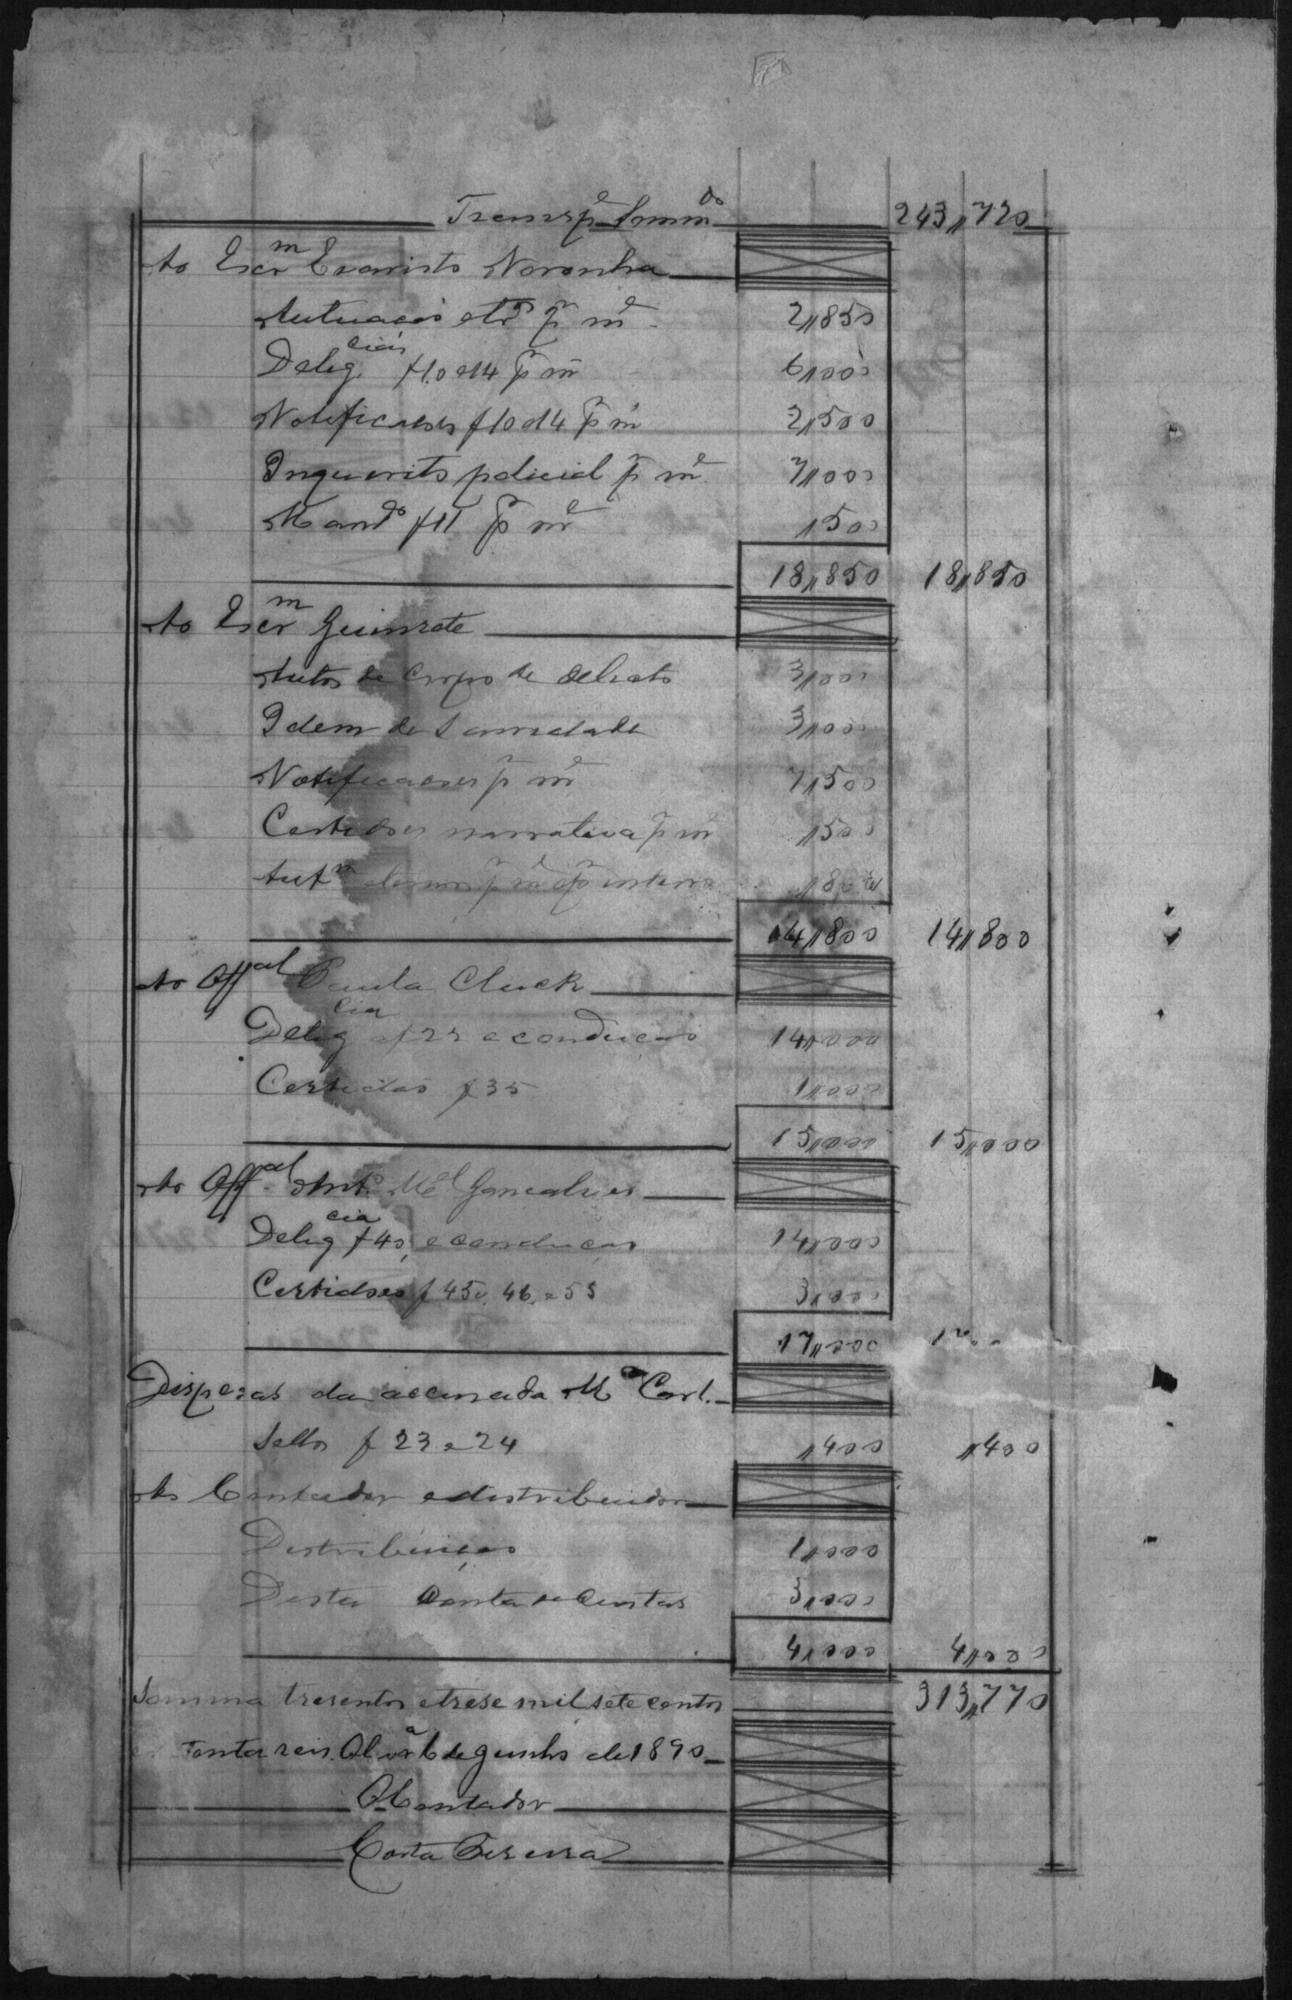 Transp.e Somm.do 243,,720
Ao Escr.m Evaristo Noronha
Autuação etc p. m.e 2,,850
Delig.cias f10 e14 p. m.e 6,,000
Notificações f10 e14 p. m.e 2,,500
Inquerito policial p. m.e 7,,000
Mand.do f11 p. m.e ,,500
18,,850 18,,850
Ao Escr.m
Autos de Corpo de delicto 3,,000
Idem de Sanidade 3,,000
Notificações p. m.e 7,,500
Certidões narrativa p. m.e ,,500
,,800
14,,800 14,,800
Ao Off.al Paula
Delig.cia e conducção 14,,000
Certidão f 35 1,,000
15,,000 15,,000
Ao Off.al Ant.o M.el Gonçalves
Delig.cia f 40, e conducção 14,,000
Certidões f 45v, 46, e 55 3,,000
17,,000
Despezas da accusada M.a Carl.
Sellos f 23 e 24 ,,400 ,,400
Ao Contador e distribuidor
Distribuição 1,,000
Desta Conta de Custas 3,,000
4,,000 4,,000
Somma tresentos e trese mil sete centos 313,,770
e setenta reis. de Junho de 1890
O Contador
Costa Bezerra